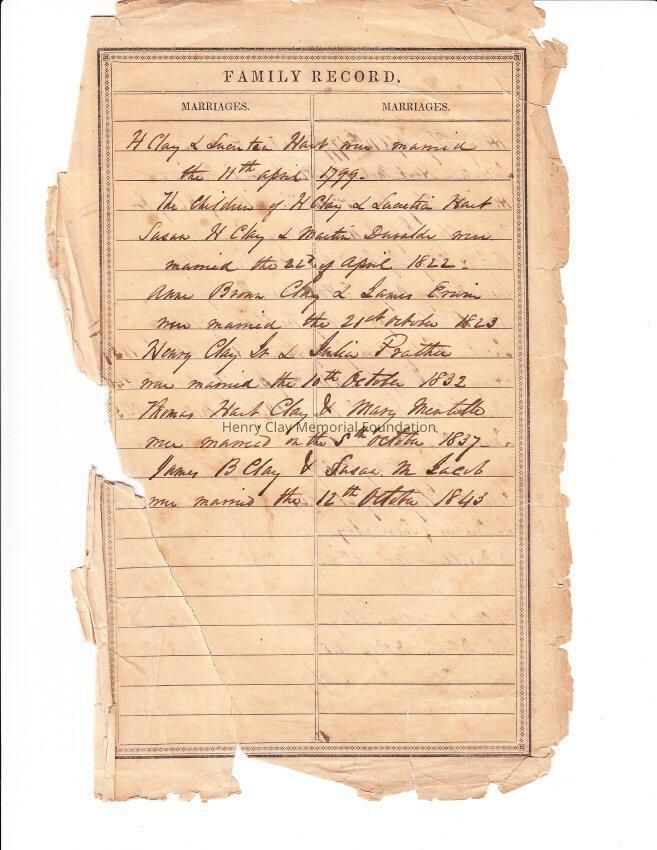 FAMILY RECORD.
MARRIAGES. MARRIAGES.
H Clay & Lucretia Hart were married
the 11th april 1799.
The Children of H Clay & Lucretia Hart
Susan H Clay & Martin Duralde were
married the 22d of April 1822.
Anne Brown Clay & James Erwin
were married the 21st October 1823
Henry Clay Jr & Julia Prather
were married the 10th October 1832
Thomas Hart Clay & Mary Mentelle
Henry Clay Memorial Foundation
were married on the 5th October 1837.
James B Clay & Susan M Jacob
were married the 12th October 1843